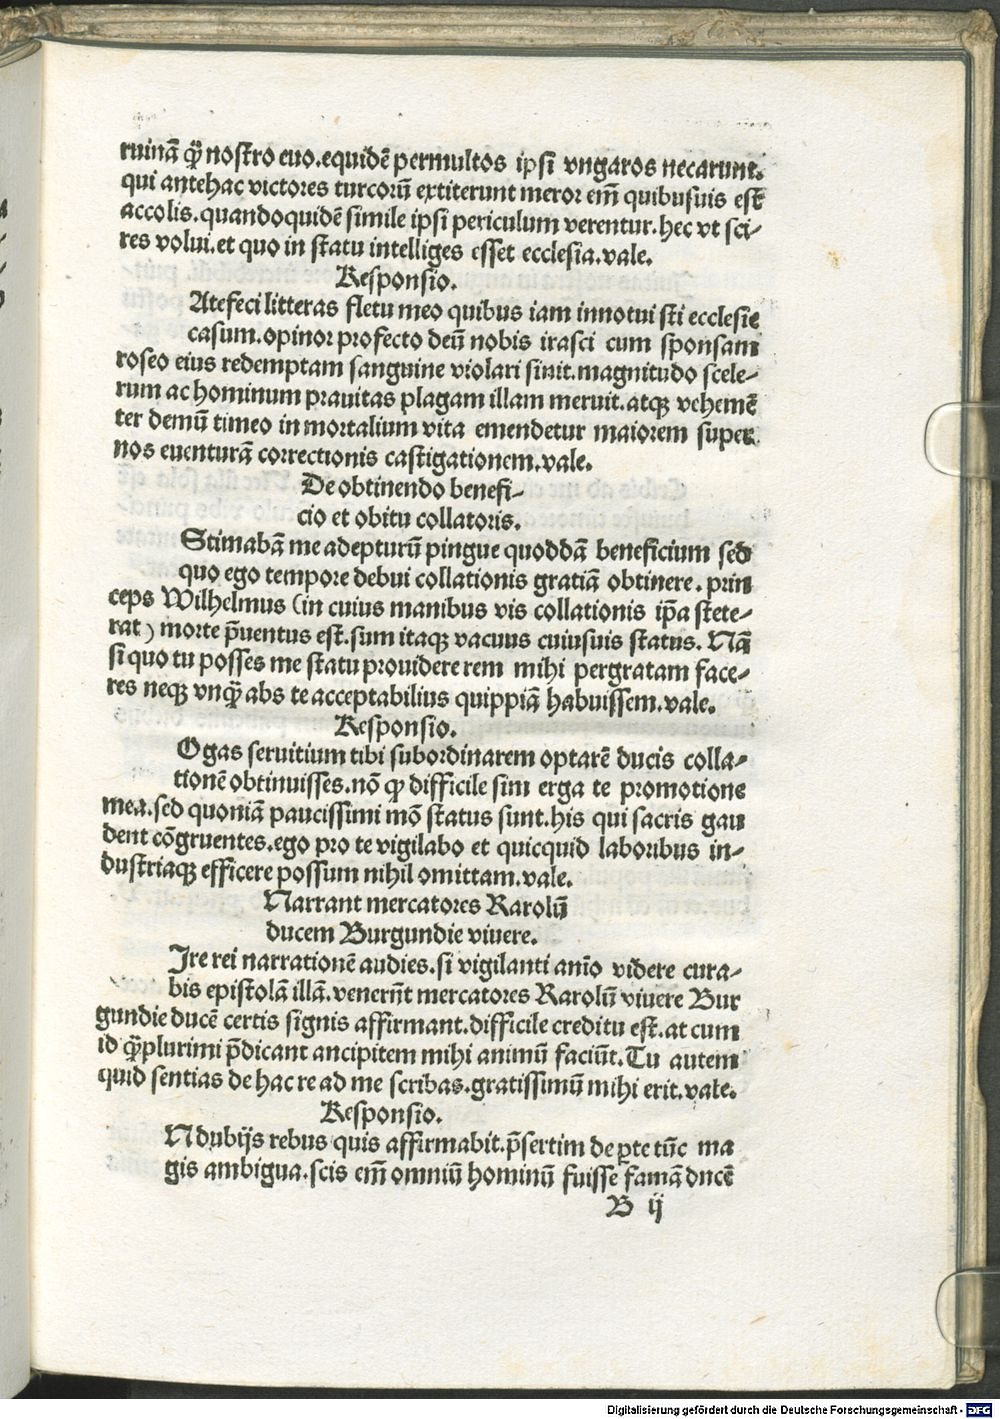 ruinā qȝ̄ nostro euo.equidē permultos ipsi vngaros necarunt.
qui antehac victores turcorū extiterunt meror em̄ quibusuis est
accolis.quandoquidē simile ipsi periculum verentur.hec vt sci-
res volui.et quo in statu intelliges esset ecclesia.vale.
Responsio.
Atefeci litteras fletu meo quibus iam innotui sti ecclesie
casum.opinor profecto deū nobis irasci cum sponsam
roseo eius redemptam sanguine violari sinit.magnitudo scele-
rum ac hominum prauitas plagam illam meruit.atqȝ vehemē
ter demū timeo in mortalium vita emendetur maiorem super
nos euenturā correctionis castigationem.vale.
De obtinendo benefi-
cio et obitu collatoris.
Stimabā me adepturū pingue quoddā beneficium sed
quo ego tempore debui collationis gratiā obtinere.prin
ceps Wilhelmus (in cuius manibus vis collationis ip̄a stete-
rat) morte p̄uentus est.sum itaqȝ vacuus cuiusuis status. Nā
si quo tu posses me statu prouidere rem mihi pergratam face-
res neqȝ vnqȝ̄ abs te acceptabilius quippiā habuissem.vale.
Responsio.
Ogas seruitium tibi subordinarem optarē ducis colla-
tionē obtinuisses.nō qȝ difficile sim erga te promotione
mea.sed quoniā paucissimi mō status sunt.his qui sacris gau
dent cōgruentes.ego pro te vigilabo et quicquid laboribus in-
dustriaqȝ efficere possum nihil omittam.vale.
Narrant mercatores Karolū
ducem Burgundie viuere.
Ire rei narrationē audies.si vigilanti anīo videre cura-
bis epistolā illā.venerūt mercatores Karolū viuere Bur
gundie ducē certis signis affirmant.difficile creditu est.at cum
id qȝ̄plurimi p̄dicant ancipitem mihi animū faciūt.Tu autem
quid sentias de hac re ad me scribas.gratissimū mihi erit.vale.
Responsio.
N dubijs rebus quis affirmabit.p̄sertim de ꝑte tūc ma
gis ambigua.scis em̄ omniū hominū fuisse famā ducē
B ij
Digitalisierung gefördert durch die Deutsche Forschungsgemeinschaft - DFG